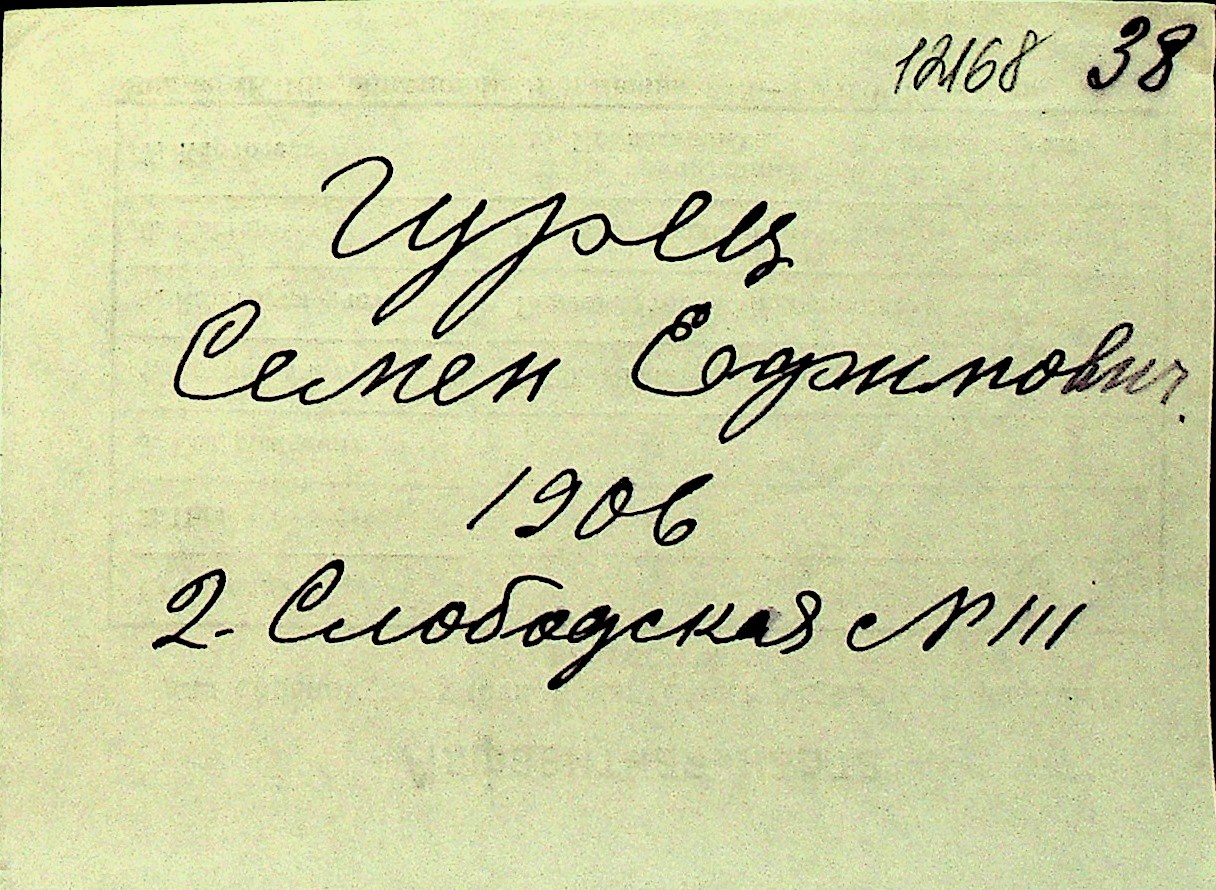 12168 38
Гурец
Семен Ефимович.
1906
2. Слободская № 111